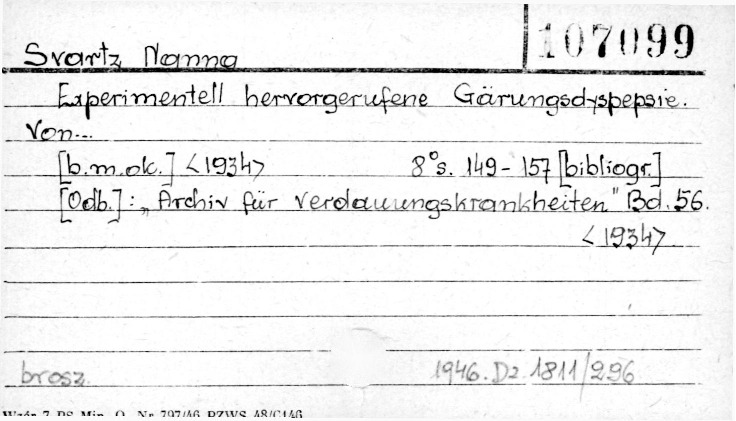 107099
Svartz Nanna
Experimentell hervorgerufene Gärungsdyspepsie.
Von...
[b.m.ok.] <1934> 8° s. 149-157 [bibliogr.]
[Odb.]: „Archiv für Verdauungskrankheiten" Bd. 56.
<1934>
brosz. 1946. Dz. 1811/296
Wzór 7 PS Min. O. Nr 797/46 PZWS 48/C146